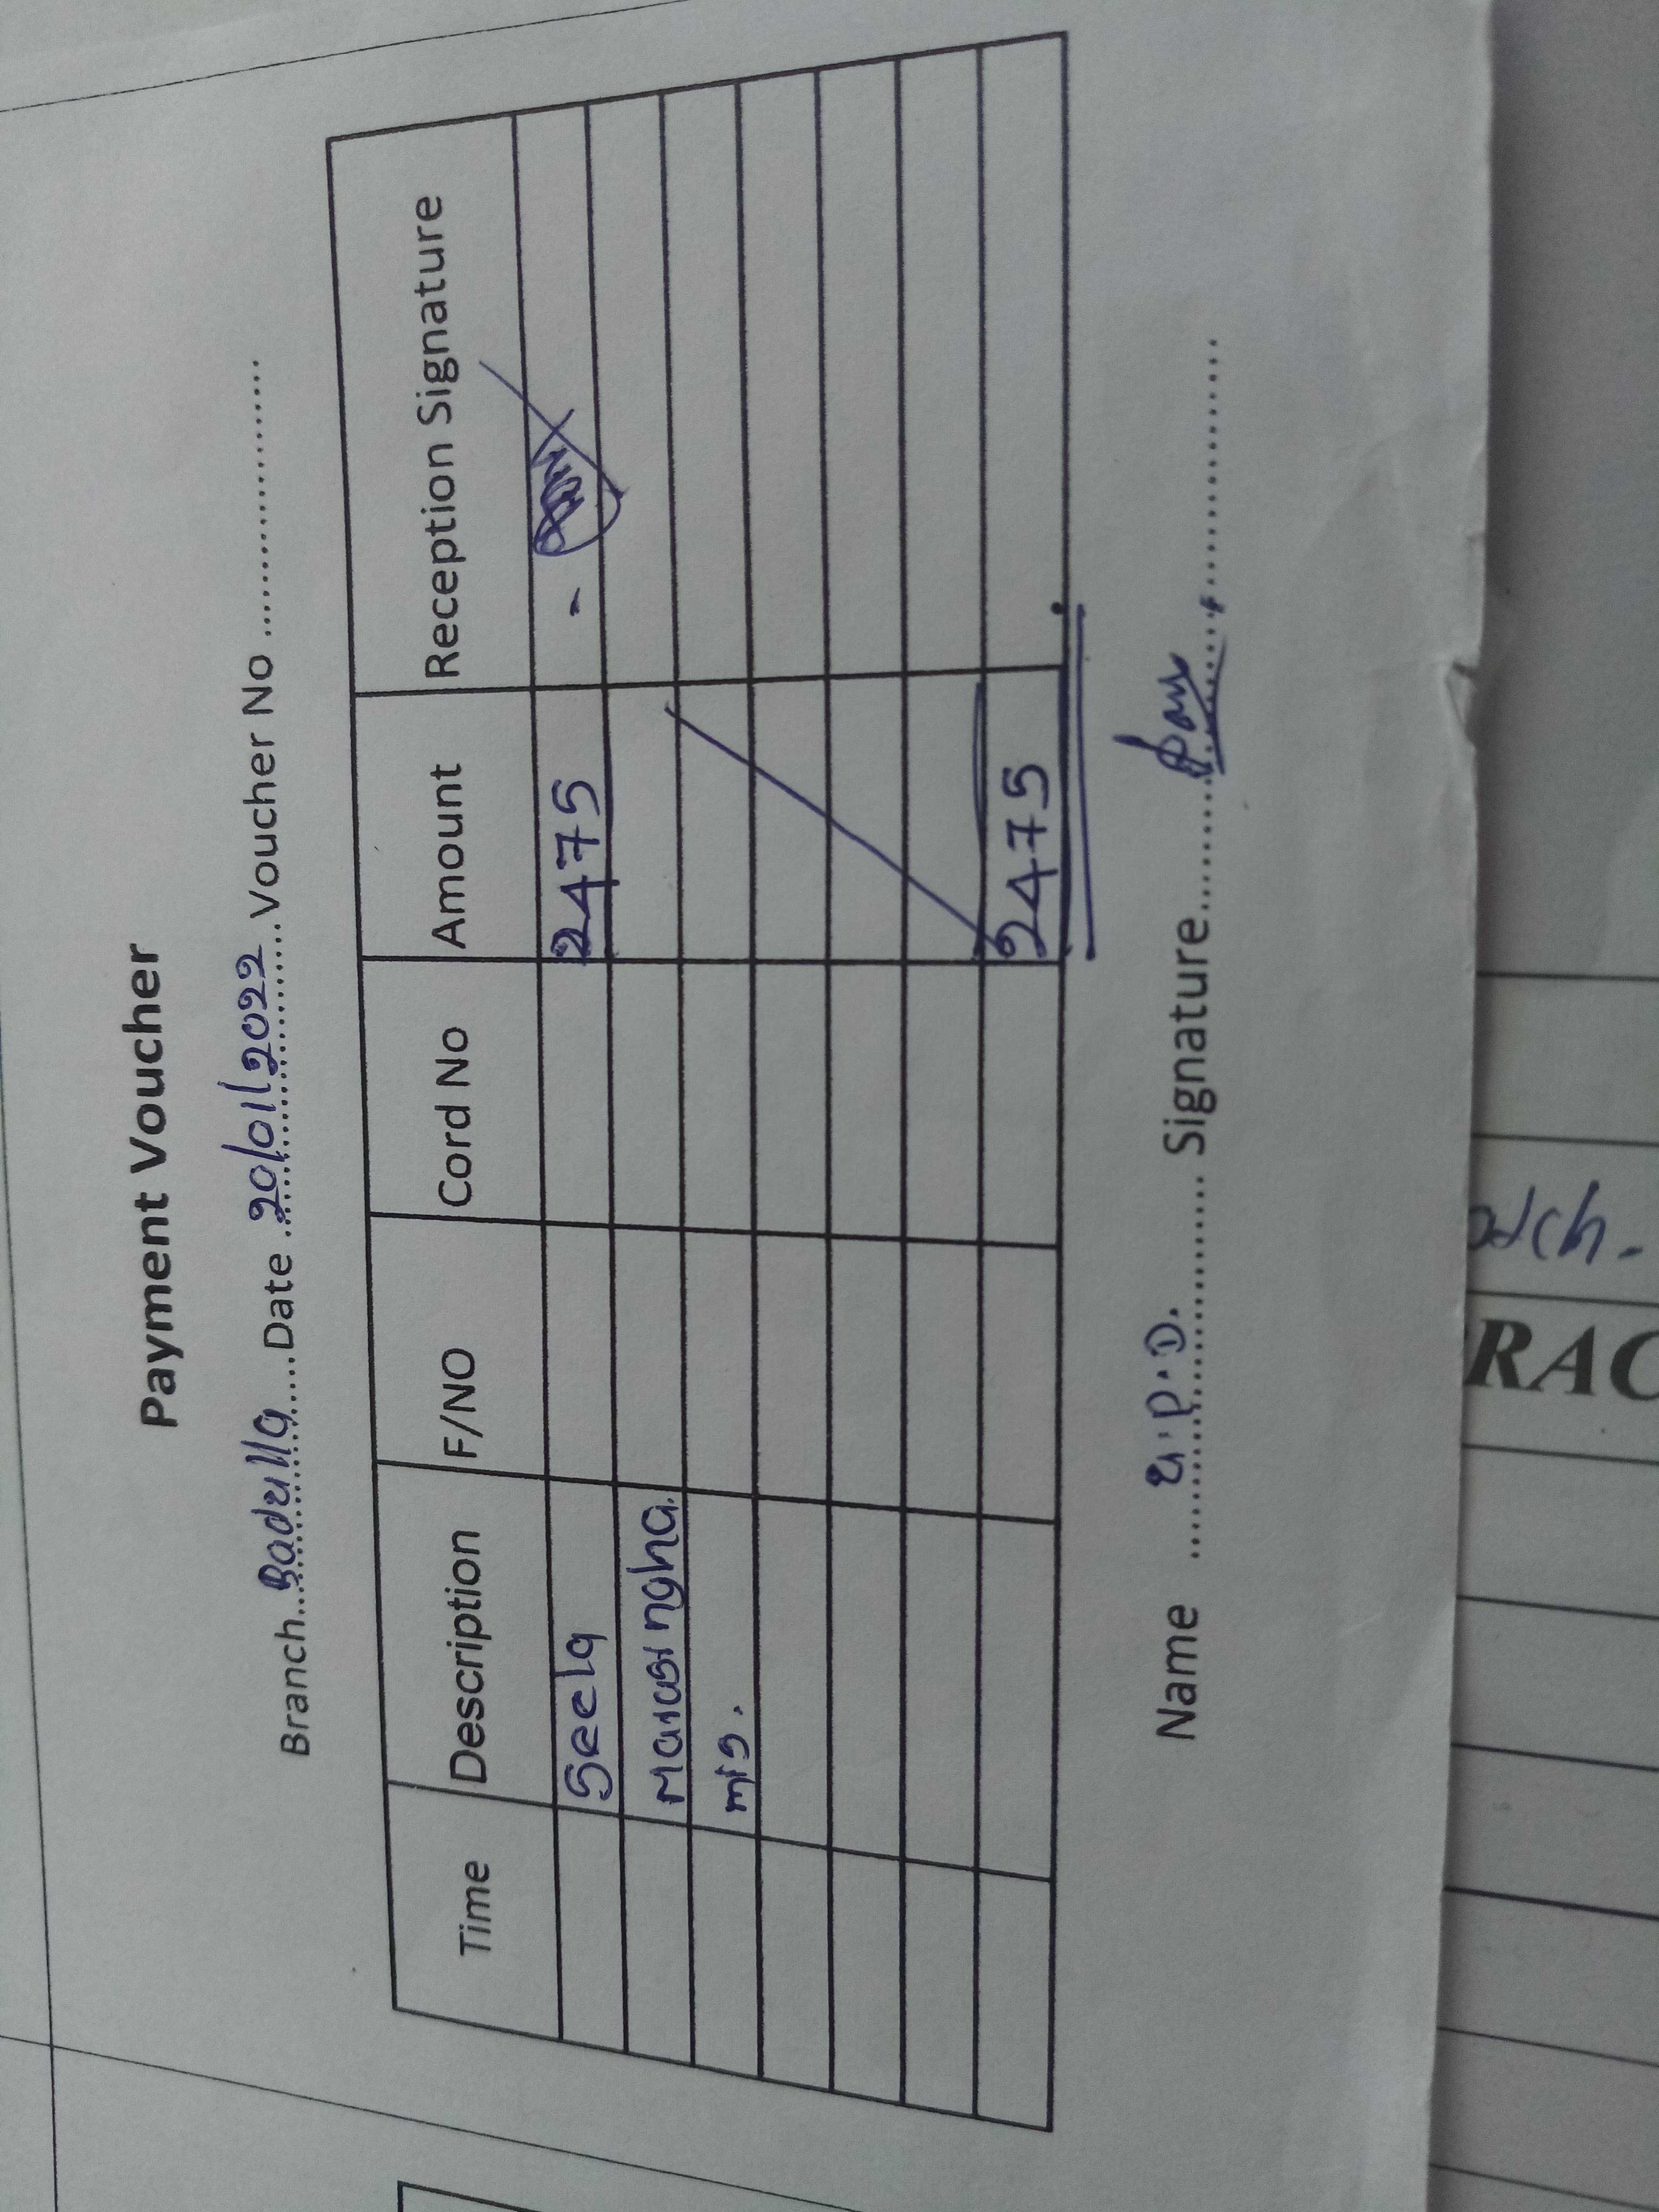 Payment Voucher
Branch...Badulla....Date..20/01/2022..Voucher No....................
Time Description F/NO Cord No Amount Reception Signature
Seela 2475 -
Marasingha.
mis.
2475
Name ........U.P.D............ Signature....................
RAC